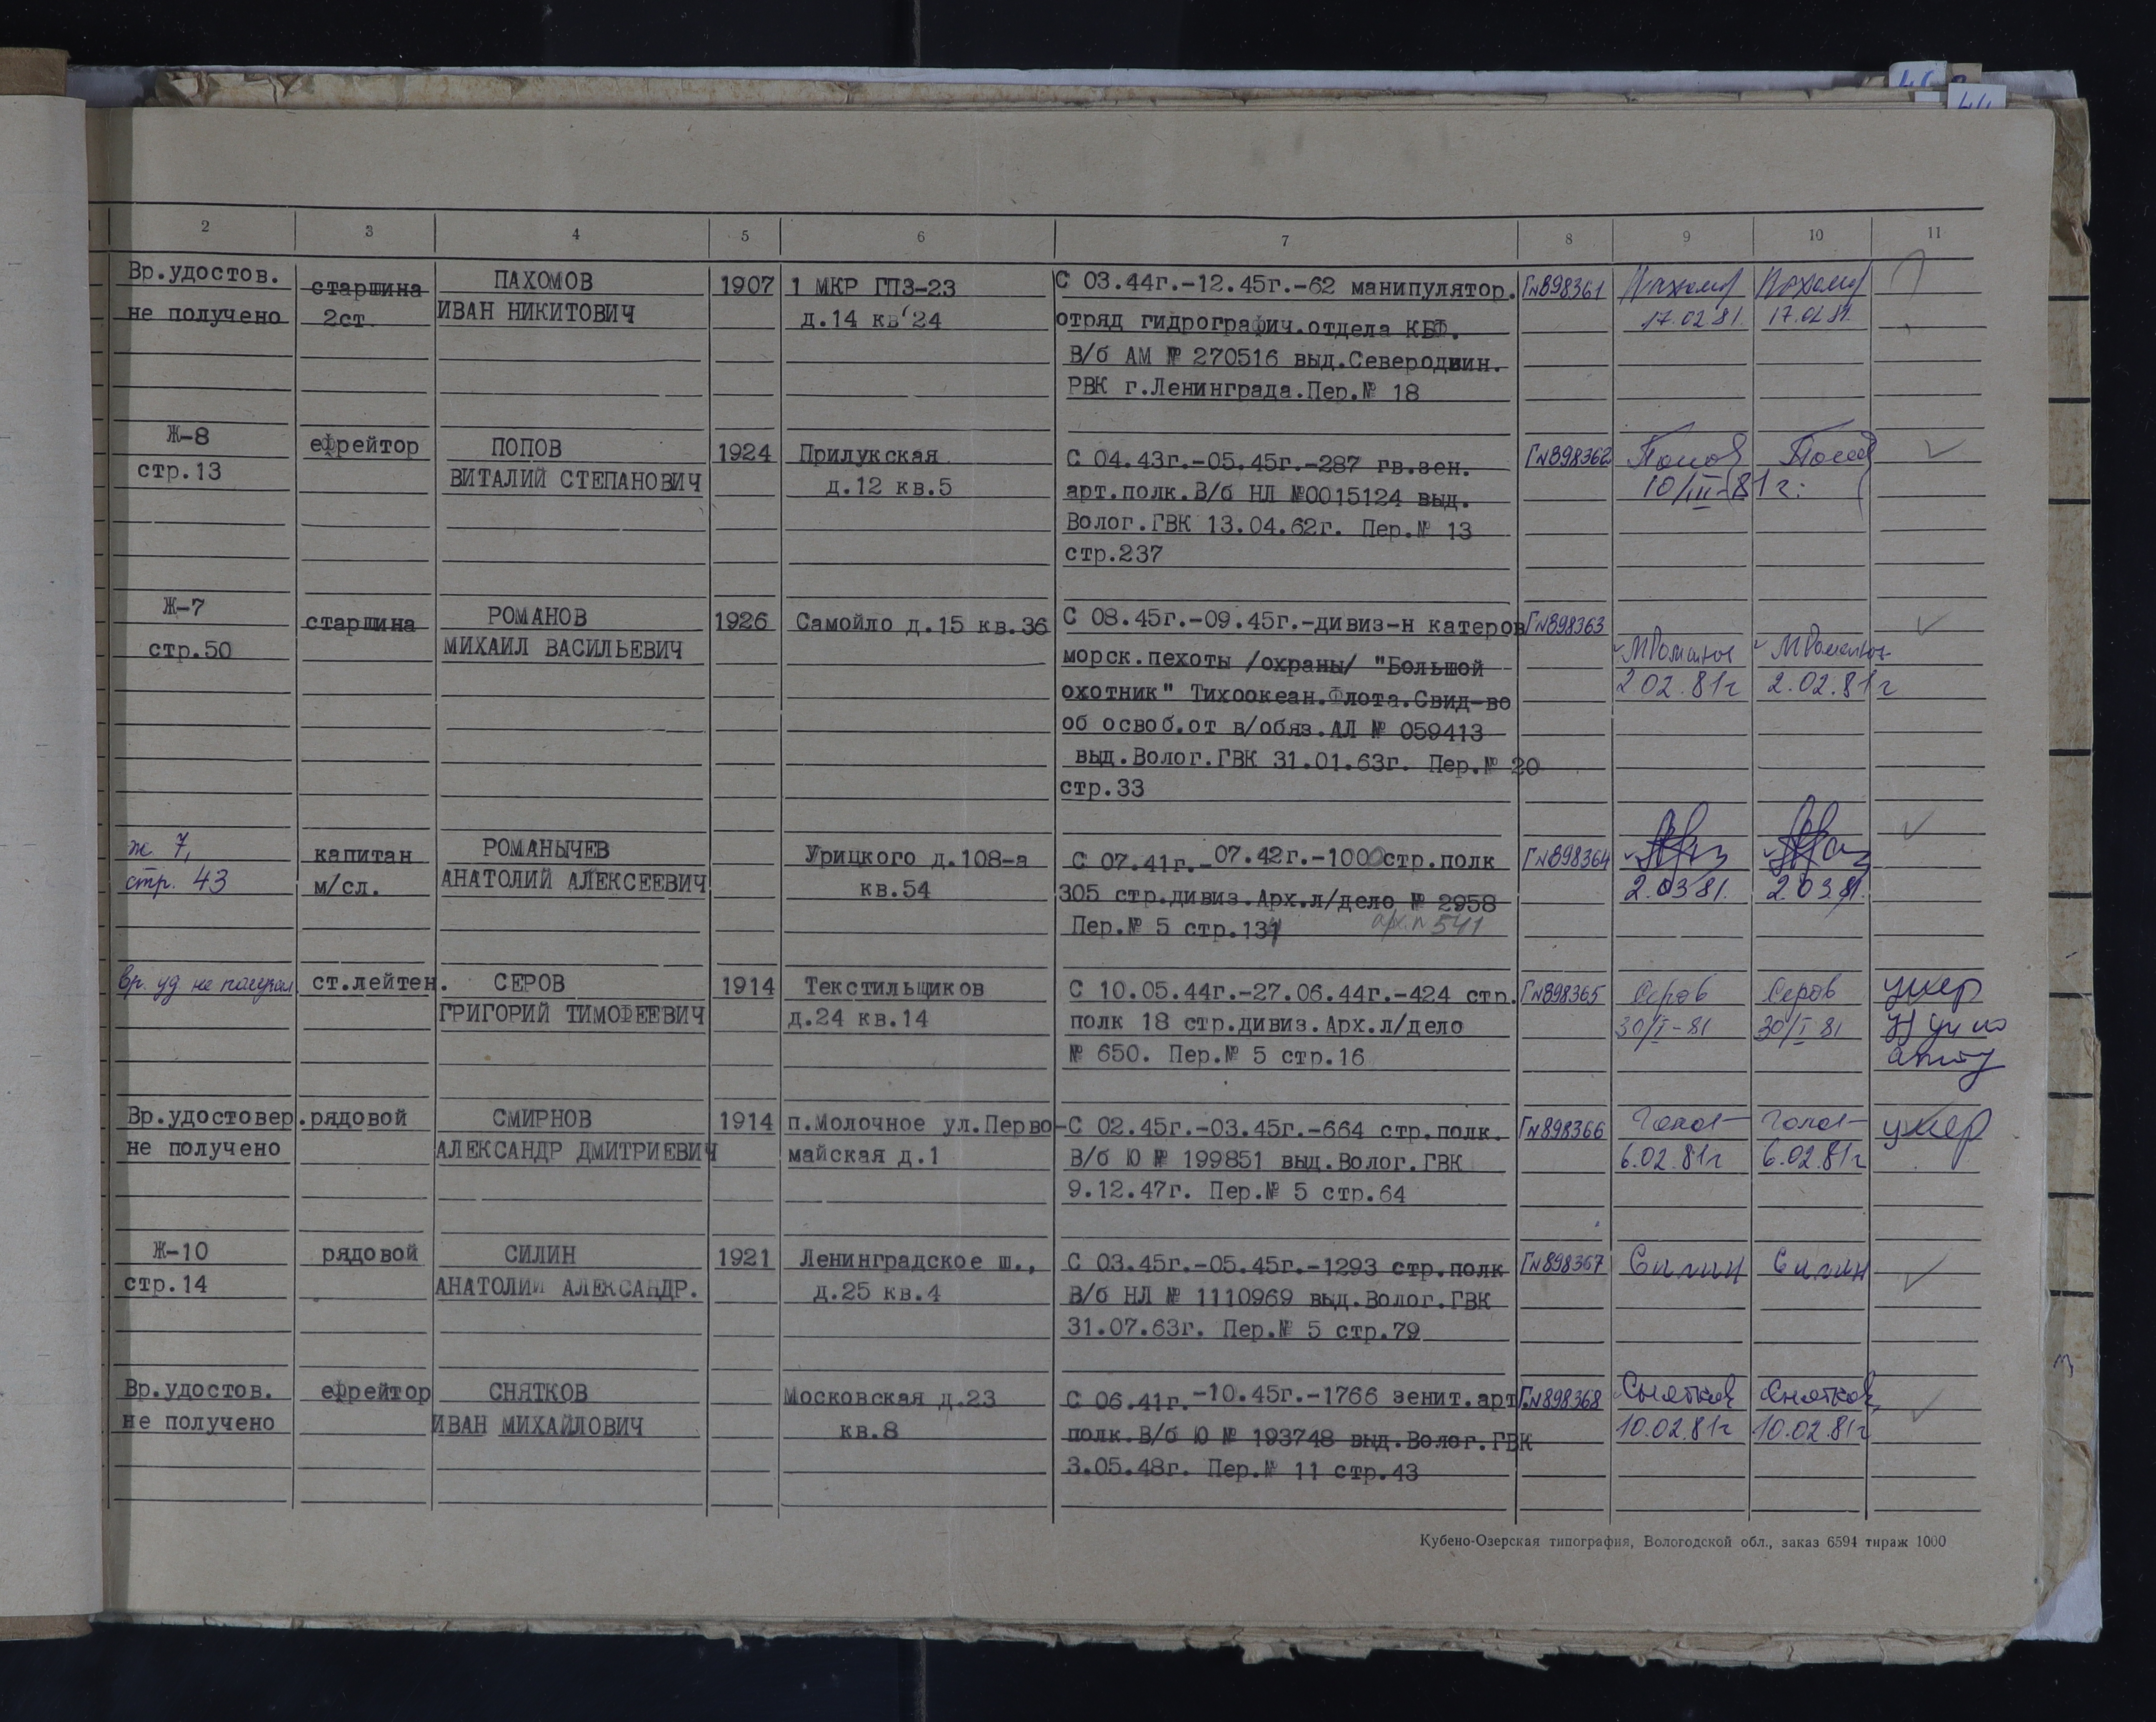 2 3 4 5 6 7 8 9 10 11
Вр.удостов. старшина ПАХОМОВ 1907 1 МКР ГПЗ-23 С 03.44г.-12.45г.-62 манипулятор. Г№898361 Пахомов Пахомов
не получено 2ст. ИВАН НИКИТОВИЧ д.14 кв 24 отряд гидрографич.отдела КБФ. 17.02.81. 17.02.81.
В/б АМ № 270516 выд.Северодвин.
РВК г.Ленинграда.Пер.№ 18
Ж-8 ефрейтор ПОПОВ 1924 Прилукская С 04.43г.-05.45г.-287 гв.зен. Г№898362 Попов Попов
стр.13 ВИТАЛИЙ СТЕПАНОВИЧ д.12 кв.5 арт.полк.В/б НЛ №0015124 выд. 10/III-81г.
Волог.ГВК 13.04.62г. Пер.№ 13
стр.237
Ж-7 старшина РОМАНОВ 1926 Самойло д.15 кв.36 С 08.45г.-09.45г.-дивиз-н катеров Г№898363
стр.50 МИХАИЛ ВАСИЛЬЕВИЧ морск.пехоты /охраны/ "Большой МРоманов МРоманов
охотник" Тихоокеан.Флота.Свид-во 2.02.81г 2.02.81г
об освоб.от в/обяз.АЛ № 059413
выд.Волог.ГВК 31.01.63г. Пер.№ 20
стр.33
ж 7, капитан РОМАНЫЧЕВ Урицкого д.108-а С 07.41г.-07.42г.-1000 стр.полк Г№898364
стр. 43 м/сл. АНАТОЛИЙ АЛЕКСЕЕВИЧ кв.54 305 стр.дивиз.Арх.л/дело № 2958 2.03 81. 2.03.81.
Пер.№ 5 стр.134 арх.№541
вр. уд не получал ст.лейтен. СЕРОВ 1914 Текстильщиков С 10.05.44г.-27.06.44г.-424 стр. Г№898365 Серов Серов умер
ГРИГОРИЙ ТИМОФЕЕВИЧ д.24 кв.14 полк 18 стр.дивиз.Арх.л/дело 30/I-81 30/I 81
№ 650. Пер.№ 5 стр.16
Вр.удостовер. рядовой СМИРНОВ 1914 п.Молочное ул.Перво- С 02.45г.-03.45г.-664 стр.полк. Г№898366 умер
не получено АЛЕКСАНДР ДМИТРИЕВИЧ майская д.1 В/б Ю № 199851 выд.Волог.ГВК 6.02.81г 6.02.81г
9.12.47г. Пер.№ 5 стр.64
Ж-10 рядовой СИЛИН 1921 Ленинградское ш., С 03.45г.-05.45г.-1293 стр.полк Г№898367 Силин Силин
стр.14 АНАТОЛИЙ АЛЕКСАНДР. д.25 кв.4 В/б НЛ № 1110969 выд.Волог.ГВК
31.07.63г. Пер.№ 5 стр.79
Вр.удостов. ефрейтор СНЯТКОВ Московская д.23 С 06.41г.-10.45г.-1766 зенит.арт Г.№898368 Снятков Снятков
не получено ИВАН МИХАЙЛОВИЧ кв.8 полк.В/б Ю № 193748 выд.Волог.ГВК 10.02.81г 10.02.81г
3.05.48г. Пер.№ 11 стр.43
Кубено-Озерская типография, Вологодской обл., заказ 6594 тираж 1000